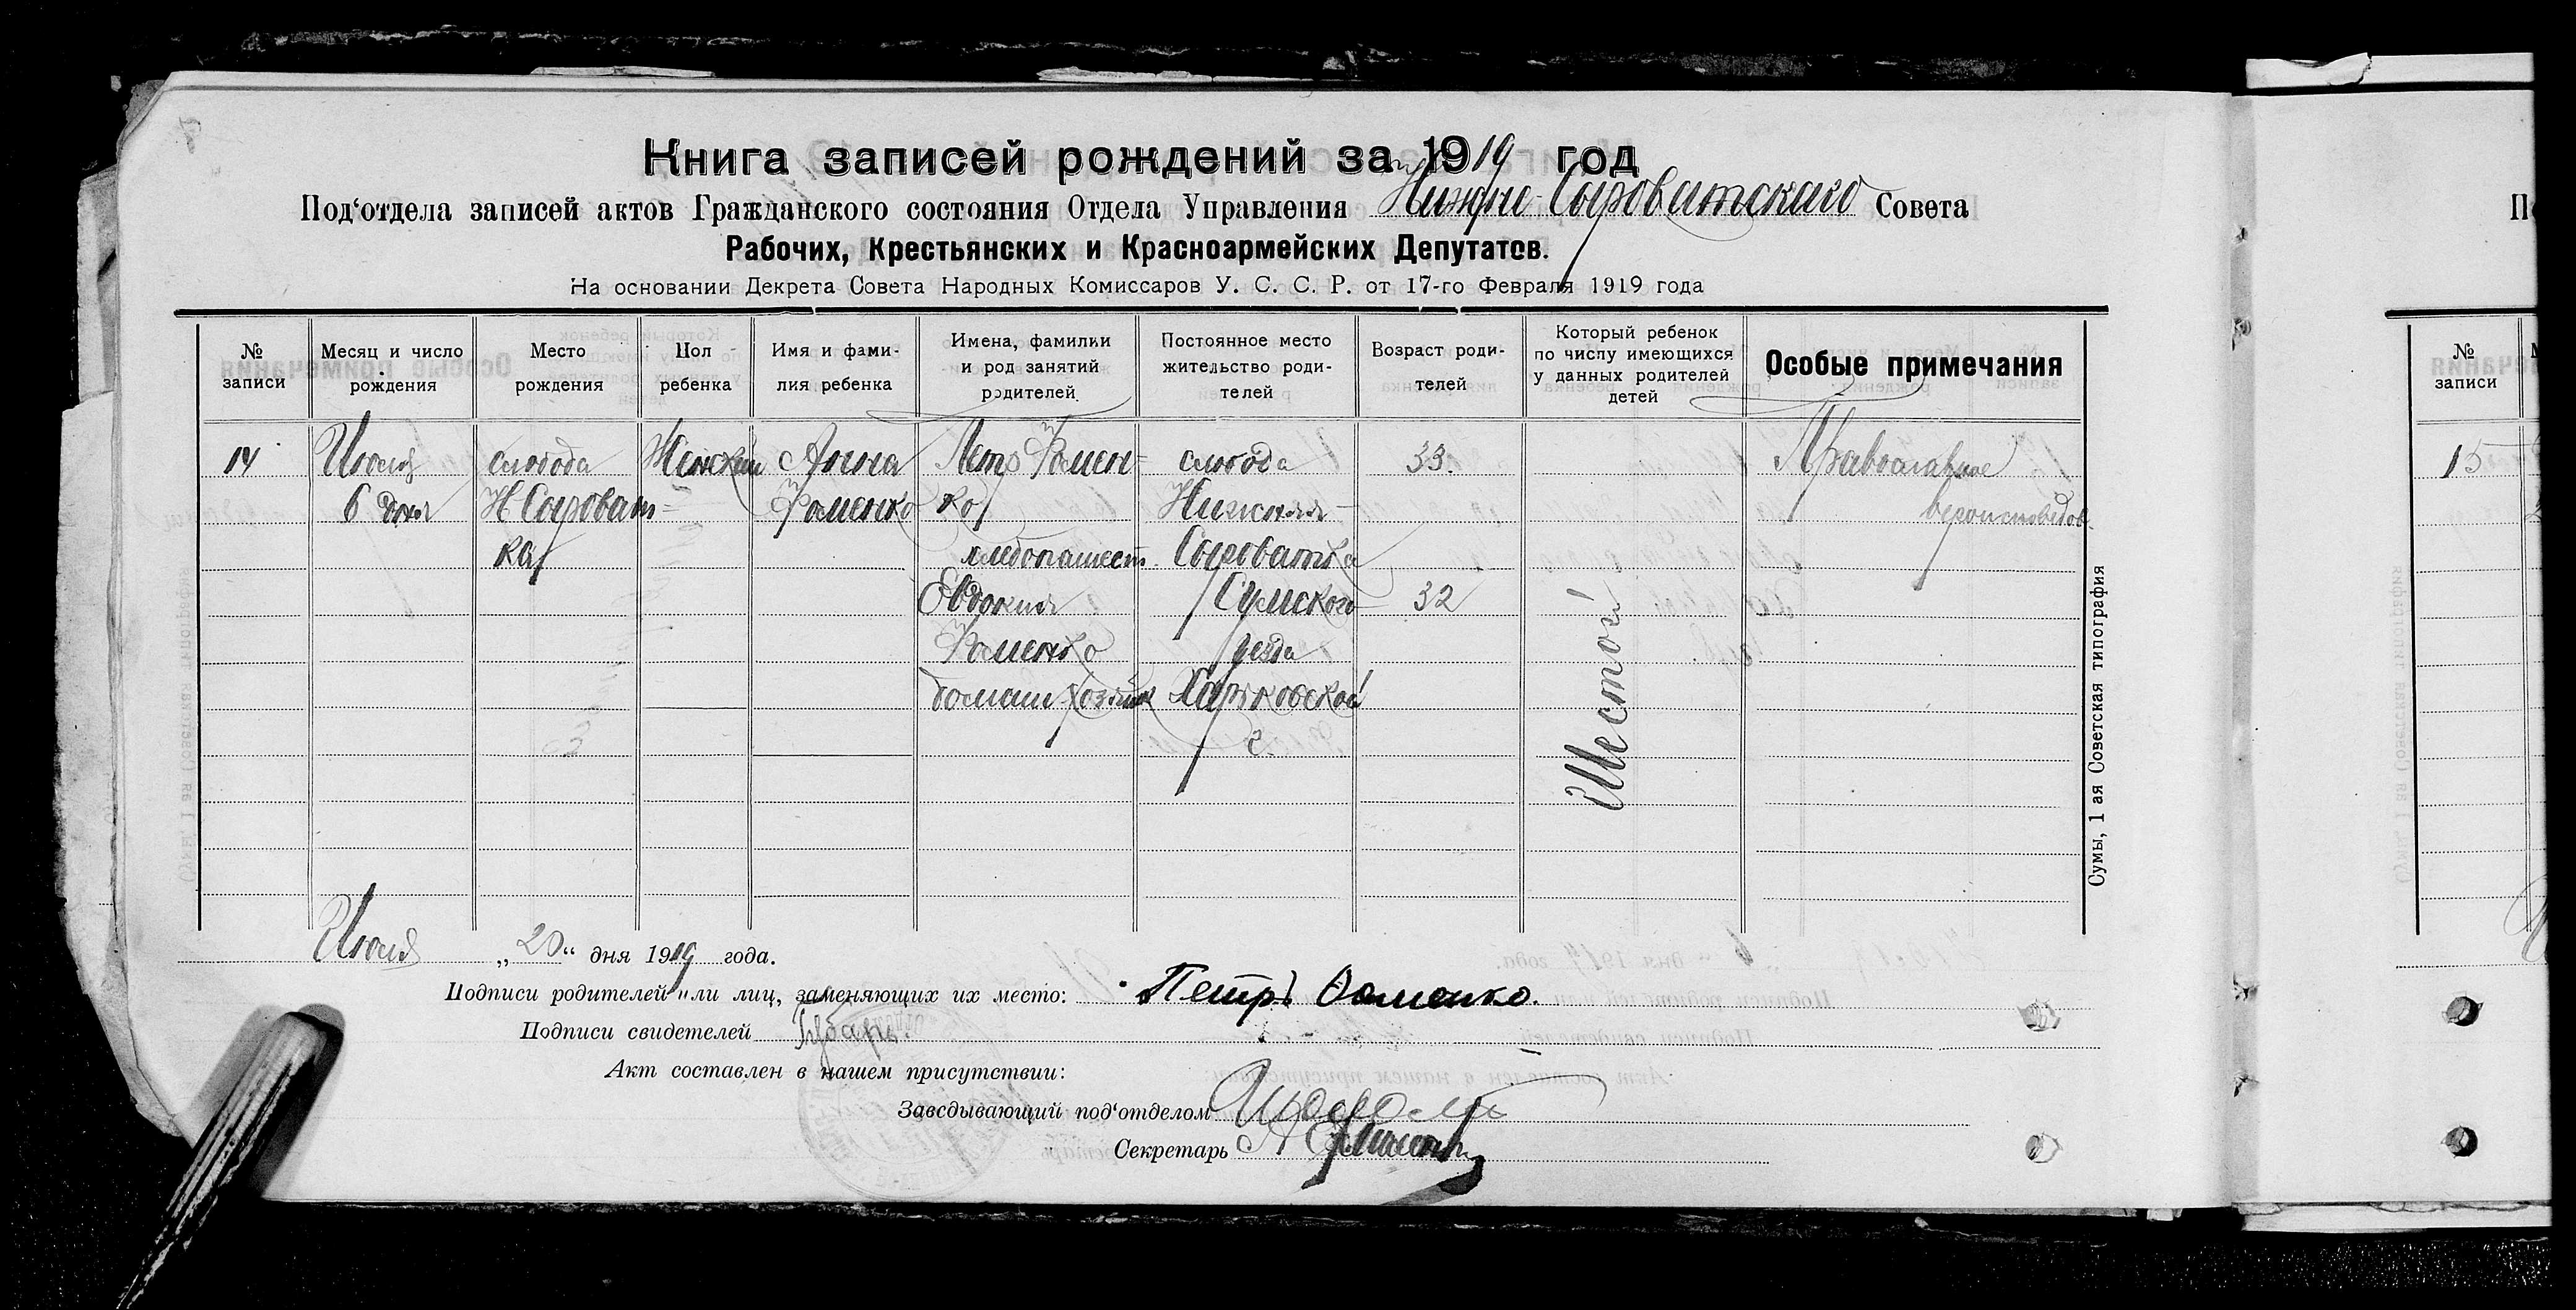 Книга записей рождений за 1919 год
Под'отдела записей актов Гражданского состояния Отдела Управления Нижне-Сыроватскаго Совета
Рабочих, Крестьянских и Красноармейских Депутатов.
На основании Декрета Совета Народных Комиссаров У. С. С. Р. от 17-го Февраля 1919 года
№ записи
Месяц и число рождения
Место рождения
Пол ребенка
Имя и фами-
лия ребенка
Имена, фамилии
и род занятий
родителей
Постоянное место
жительство роди-
телей
Возраст роди-
телей
Который ребенок
по числу имеющихся
у данных родителей
детей
Особые примечания
№
записи
14
Июля
6 дня
слобода
Н Сыроват-
ка
Женский
Анна
Фоменко
Петр Фомен-
ко
хлебопашест.
Евдокия
Фоменко
домаш хозяйк
слобода
Нижняя-
Сыроватка
Сумского
уезда
Харьковской
г.
33.
32
Шестой
Православное
вероисповедов.
15
Сумы, 1 ая Советская типография
Июля „20“ дня 1919 года.
Подписи родителей или лиц, заменяющих их место: Петръ Фоменко.
Подписи свидетелей
Акт составлен в нашем присутствии:
Заведывающий под'отделом
Секретарь